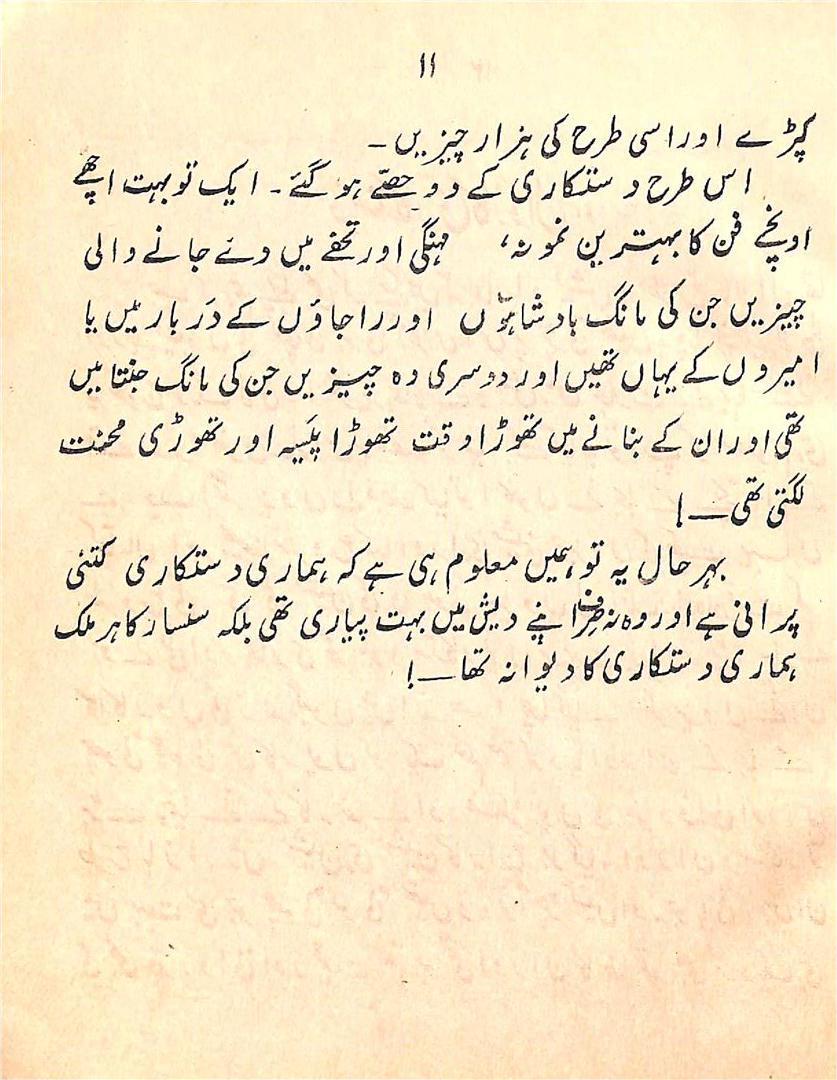 ۱۱
کپڑے اور اسی طرح کی ہزار چیزیں۔
اس طرح دستکاری کے دو حصّے ہو گئے۔ ایک تو بہت اچھے
اونچے فن کا بہترین نمونہ، مہنگی اور تحفے میں دئے جانے والی
چیزیں جن کی مانگ بادشاہوں اور راجاؤں کے دَربار میں یا
امیروں کے یہاں تھیں اور دوسری وہ چیزیں جن کی مانگ جنتا میں
تھی اور ان کے بنانے میں تھوڑا وقت تھوڑا پَیسہ اور تھوڑی محنت
لگتی تھی — !
بہر حال یہ تو ہمیں معلوم ہی ہے کہ ہماری دستکاری کتنی
پرانی ہے اور وہ نہ صرف اپنے دیش میں بہت پیاری تھی بلکہ سنسار کا ہر ملک
ہماری دستکاری کا دیوانہ تھا — !